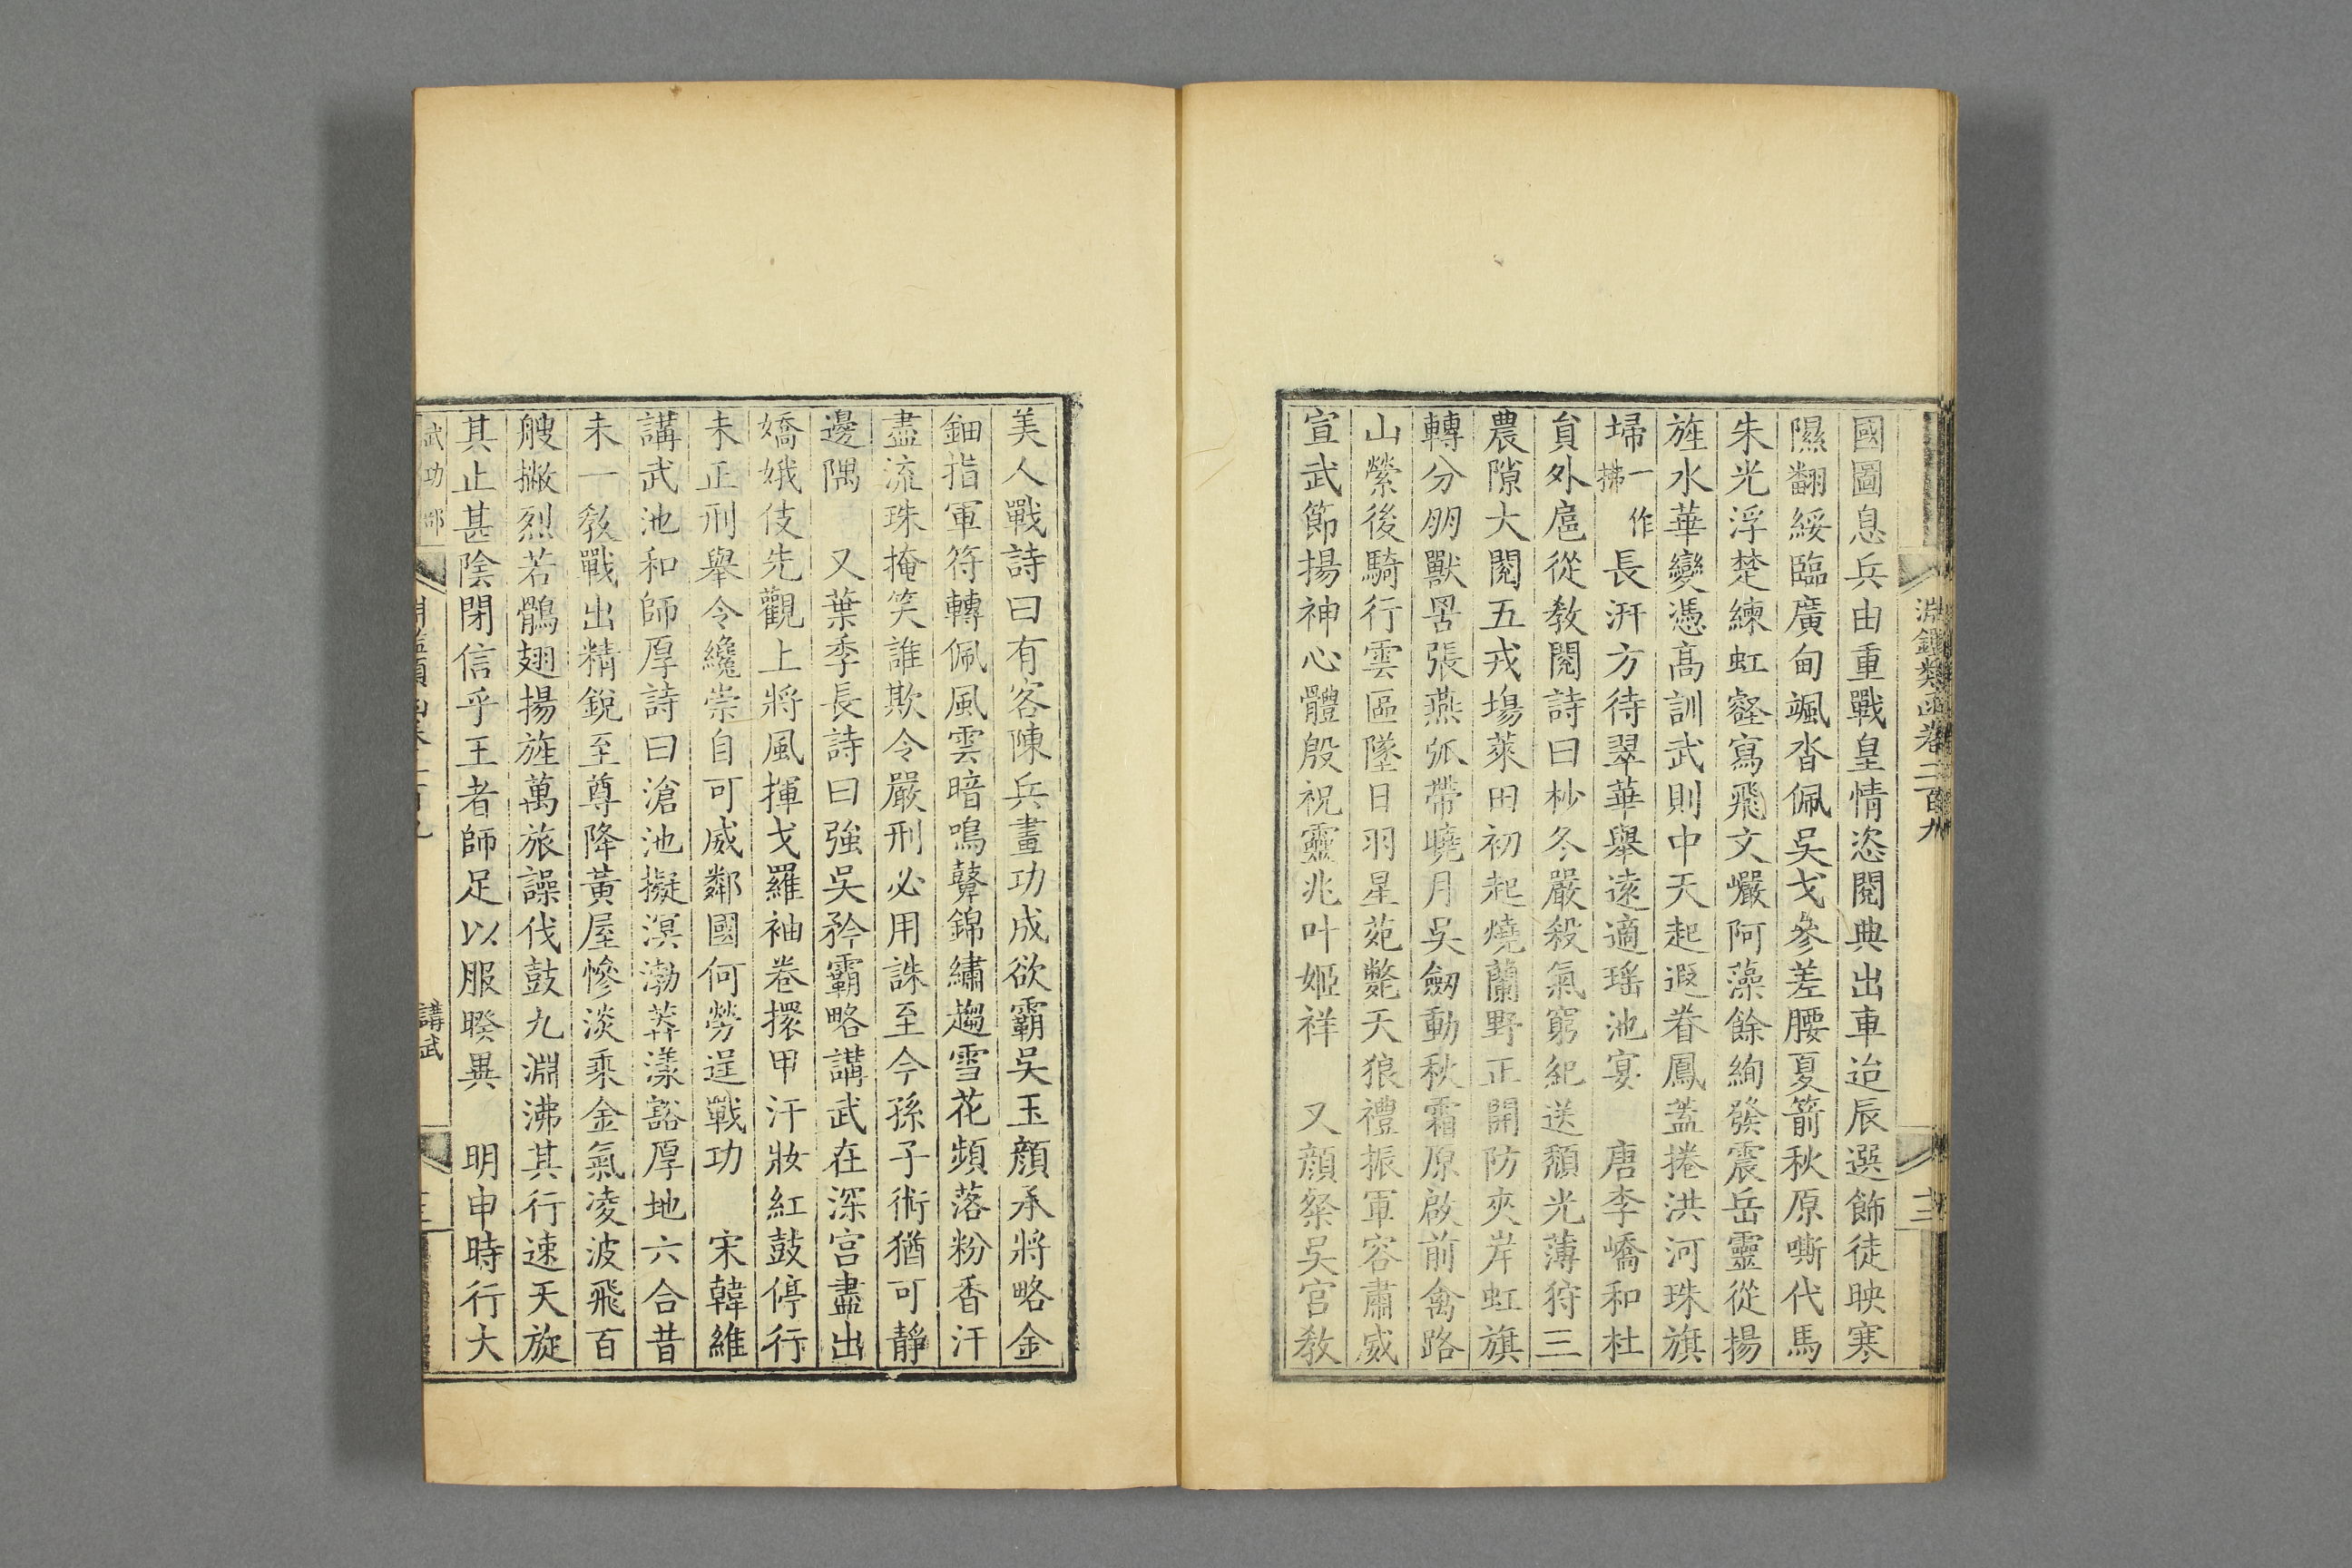 淵鑑類函卷二百九
國圖息兵由重戰皇情恣閱典出車迨辰選飾徒映寒
隰翻綏臨廣甸颯沓佩吳戈參差腰夏箭秋原嘶代馬
朱光浮楚練虹壑寫飛文巗阿藻餘絢發震岳靈從揚
旌水華變憑高訓武則中天起遐眷鳳蓋捲洪河珠旗
埽一作拂長汧方待翠華舉遠適瑶池宴　唐李嶠和杜
貟外扈從教閱詩曰杪冬嚴殺氣窮紀送頽光薄狩三
農隙大閱五戎場萊田初起燒蘭野正開防夾岸虹旗
轉分朋獸罟張燕弧帶曉月吳劒動秋霜原啟前禽路
山縈後騎行雲區墜日羽星苑斃天狼禮振軍容肅威
宣武節揚神心體殷祝靈兆叶姬祥　又顔粲吳宮教
美人戰詩曰有客陳兵畫功成欲霸吳玉顔承將略金
鈿指軍符轉佩風雲暗鳴鼙錦繡趨雪花頻落粉香汗
盡流珠掩笑誰欺令嚴刑必用誅至今孫子術猶可靜
邊隅　又葉季長詩曰強吳矜霸略講武在深宮盡出
嬌娥伎先觀上將風揮戈羅袖卷擐甲汗妝紅鼓停行
未正刑舉令纔崇自可威鄰國何勞逞戰功　宋韓維
講武池和師厚詩曰滄池擬溟渤莽漾豁厚地六合昔
未一教戰出精銳至尊降黃屋慘淡乘金氣凌波飛百
艘撇烈若鶻翅揚旌萬旅譟伐鼓九淵沸其行速天旋
其止甚陰閉信乎王者師足以服暌異　明申時行大
武功部
講武